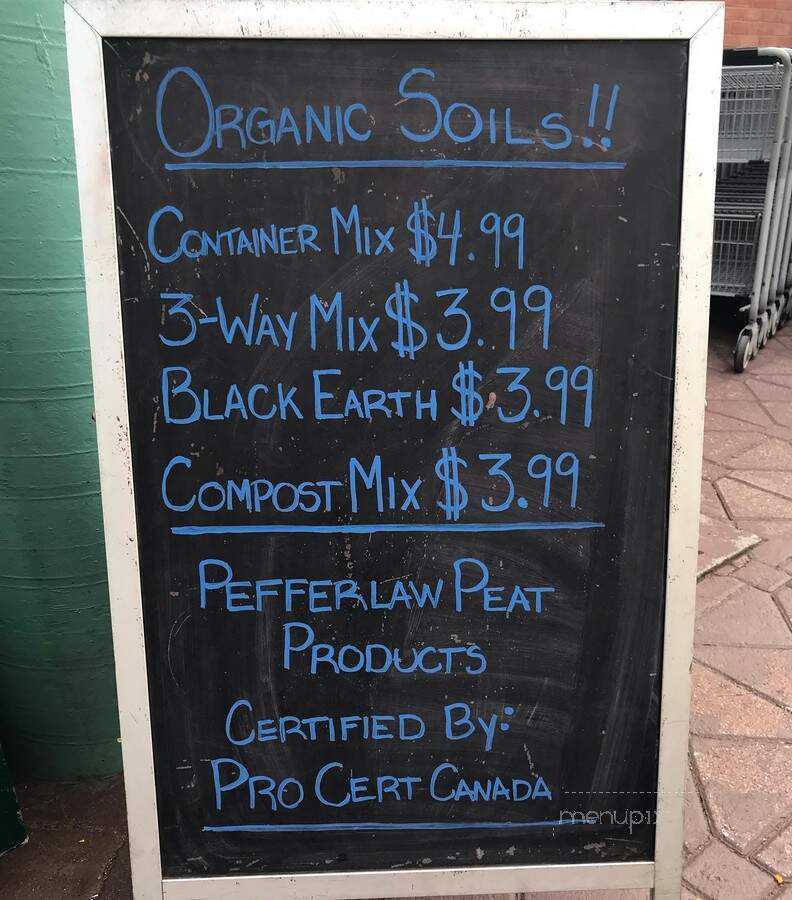 Organic Soils!!
Container Mix $4.99
3-Way Mix $3.99
Black Earth $3.99
Compost Mix $3.99
Pefferlaw Peat
Products
Certified By:
Pro Cert Canada
menupix